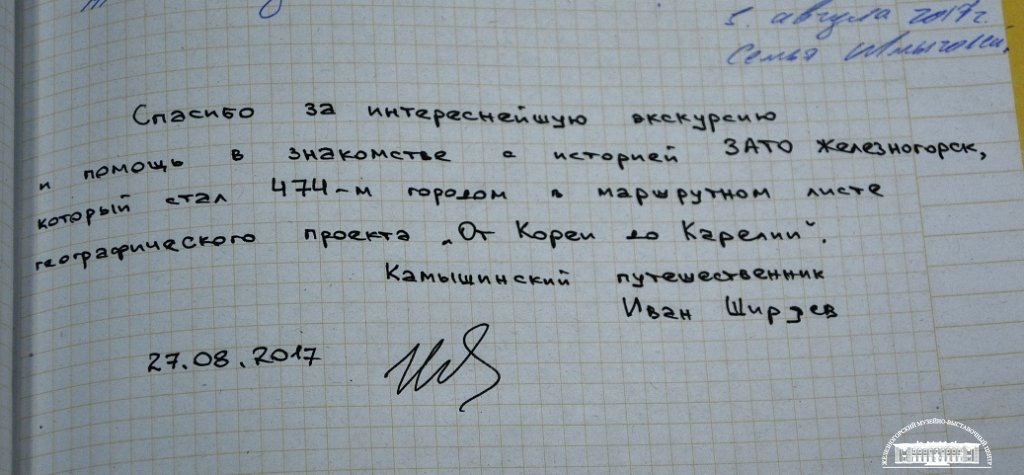 5. августа 2017г.
Семья
Спасибо за интереснейшую экскурсию
и помощь в знакомстве с историей ЗАТО Железногорск,
который стал 474-м городом в маршрутном листе
географического проекта „От Кореи до Карелии".
Камышинский путешественник
Иван Ширзев
27.08.2017
ЖЕЛЕЗНОГОРСКИЙ МУЗЕЙНО-ВЫСТАВОЧНЫЙ ЦЕНТР